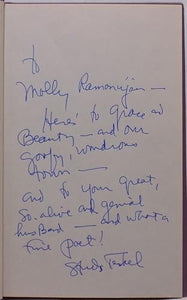 To
Molly Ramanujan —
Here's to Grace and
Beauty — and our
goofy, wondrous
town —
and to your great,
so alive and genial
husband — and what a
fine poet!
Studs Terkel